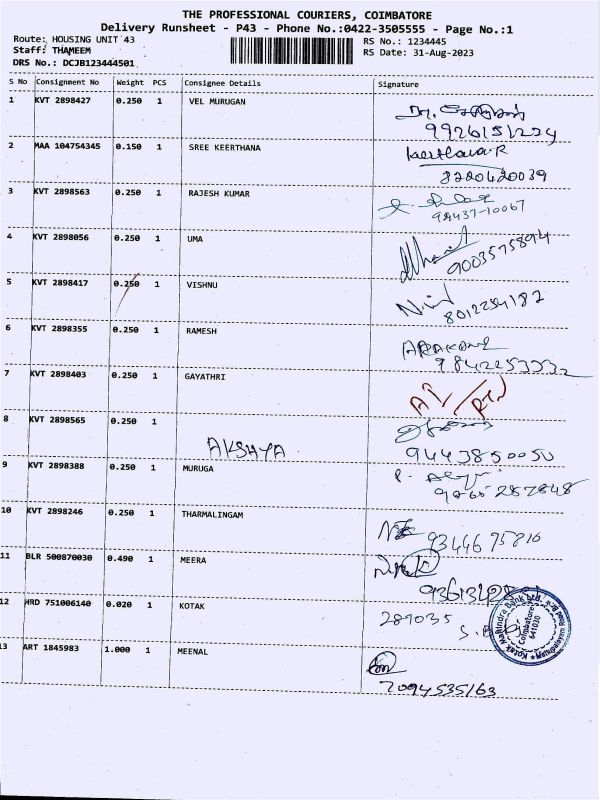 THE PROFESSIONAL COURIERS, COIMBATORE
Delivery Runsheet - P43 - Phone No.:0422-3505555 - Page No.:1
Route: HOUSING UNIT 43
RS No.: 1234445
Staff: THAMEEM
RS Date: 31-Aug-2023
DRS No.: DCJB123444501
S No Consignment No Weight PCS Consignee Details Signature
1 KVT 2898427 0.250 1 VEL MURUGAN
9926151224
2 MAA 104754345 0.150 1 SREE KEERTHANA Keerthana.R
8220420039
3 KVT 2898563 0.250 1 RAJESH KUMAR
98437-10067
4 KVT 2898056 0.250 1 UMA
9003575894
5 KVT 2898417 0.250 1 VISHNU
8012234182
6 KVT 2898355 0.250 1 RAMESH
7 KVT 2898403 0.250 1 GAYATHRI
8 KVT 2898565 0.250 1 AKSHYA
9443850050
9 KVT 2898388 0.250 1 MURUGA
10 KVT 2898246 0.250 1 THARMALINGAM
9344675810
11 BLR 500870030 0.490 1 MEERA
12 HRD 751006140 0.020 1 KOTAK 289035
Kotak Mahindra Bank Ltd.
Coimbatore
641030
13 ART 1845983 1.000 1 MEENAL
7094535163